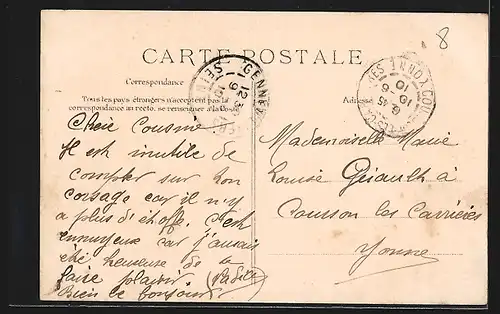 8
CARTE POSTALE
Correspondance
Tous les pays étrangers n'acceptent pas la
correspondance au recto. se renseigner à la Poste
Adresse
GENNEVILLIERS
SEINE
Chère Cousine
Il est inutile de
compter sur ton
corsage car il n'y
a plus de étoffe. C'est
ennuyeux car j'aurais
été heureuse de te
faire plaisir
Bien le bonjour
Mademoiselle Marie
Louise
à
Cousson les Carrières
Yonne